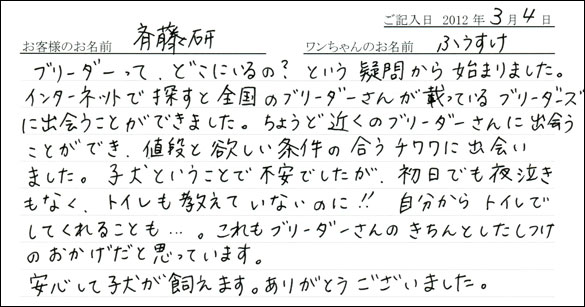 ご記入日 2012年3月4日
お客様のお名前 斉藤研 ワンちゃんのお名前 ふうすけ
ブリーダーって、どこにいるの?という疑問から始まりました。
インターネットで探すと全国のブリーダーさんが載っているブリーダーズ
に出会うことができました。ちょうど近くのブリーダーさんに出会う
ことができ、値段と欲しい条件の合うチワワに出会い
ました。子犬ということで不安でしたが、初日でも夜泣き
もなく、トイレも教えていないのに!!自分からトイレで
してくれることも…。これもブリーダーさんのきちんとしたしつけ
のおかげだと思っています。
安心して子犬が飼えます。ありがとうございました。